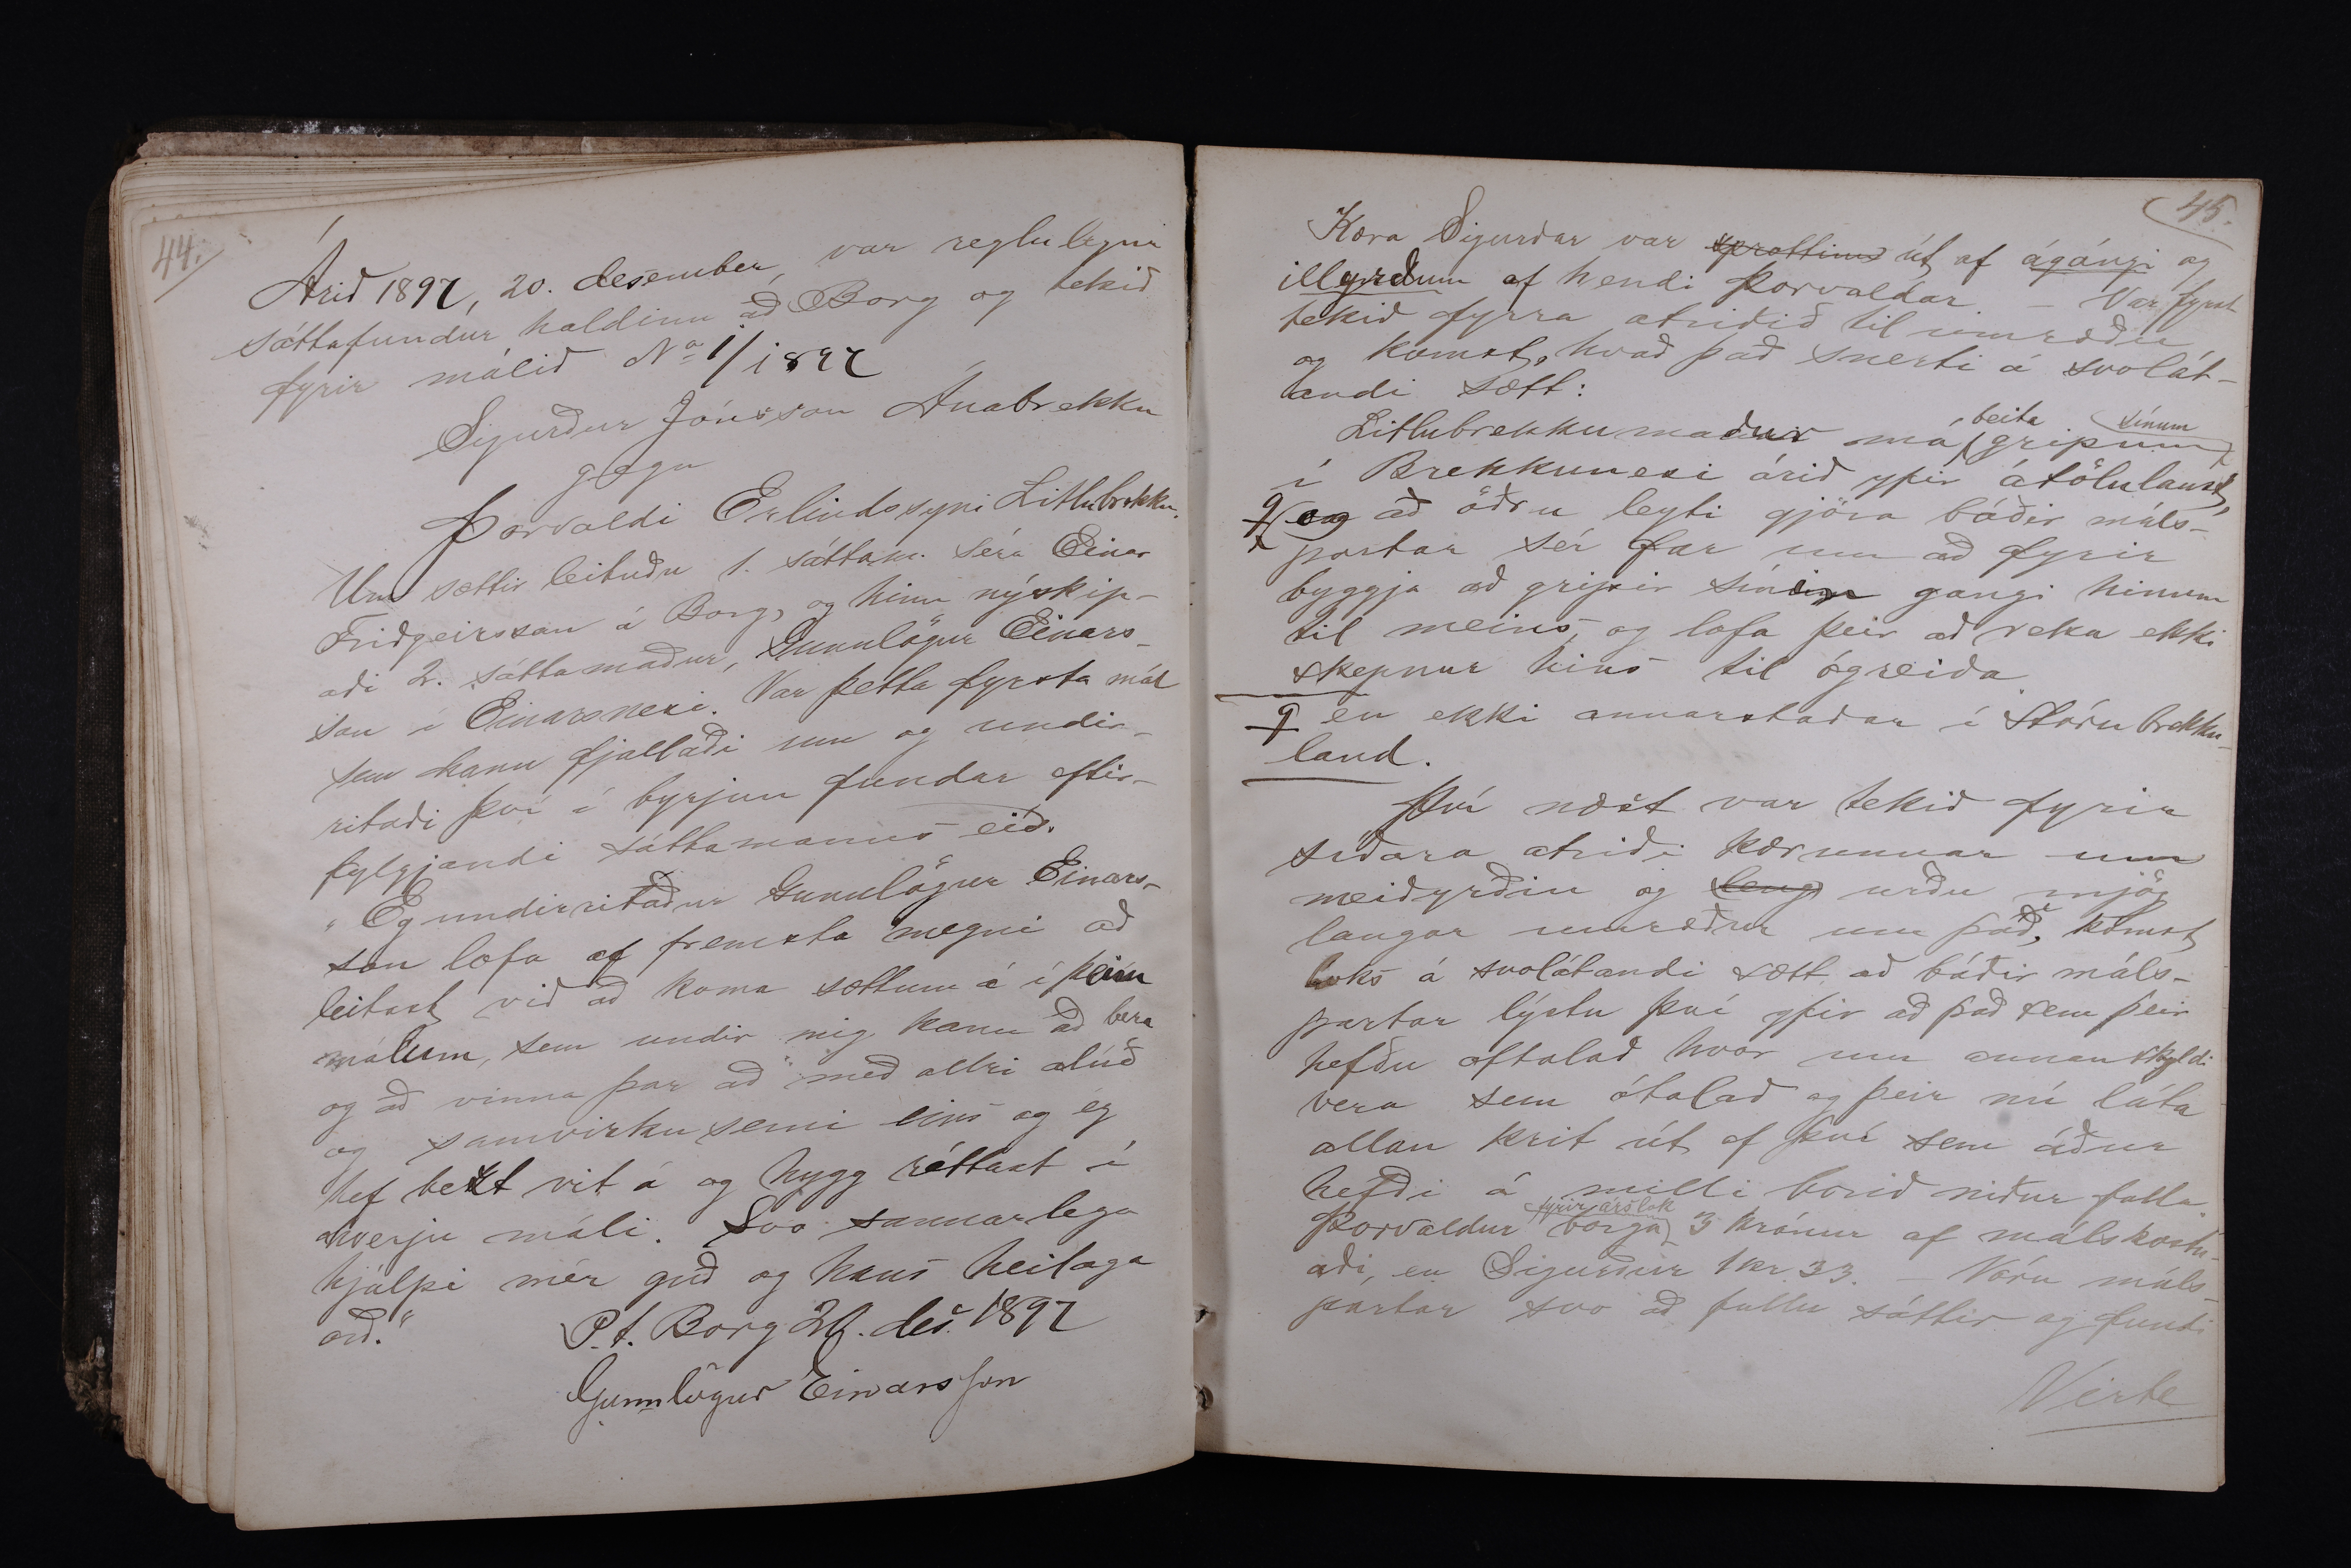 44.
Árið 1897, 20. desember, var reglulegur
sáttafundur haldinn að Borg og tekið
fyrir málið No 1/1897
Sigurður Jónsson Ánabrekku
gegn
Þorvaldi Erlindssyni Litlubrekku.
Um sættir leituðu 1. sáttam. séra Einar
Friðgeirsson á Borg, og hinn nýskip-
aði 2. sáttamaður, Gunnlögur Einars-
son í Einarsnesi. Var þetta fyrsta mál
sem hann fjallaði um og undir-
ritaði því í byrjun fundar eftir-
fylgjandi sáttamanns eið.
„Eg undirritaður Gunnlögur Einars-
son lofa af fremsta megni að
leitast við að koma sættum á í þeim
málum, sem undir mig kann að bera
og að vinna þar að með allri alúð
og samvirkusemi eins og ég
hef bezt vit á og hygg réttast í
hverju máli. Svo sannarlega
hjálpi mér guð og hans heilaga
orð.“
P.t. Borg 20. des. 1897
Gunnlögur Einarsson
45.
Kæra Sigurðar var sprottin út af ágángi og
illyrðum af hendi Þorvaldar – Var fyrst
tekið fyrra atriðið til umræðu
og komst, hvað það snerti á svolát-
andi sætt:
beita sínum
Litlubrekkumaður má gripum
í Brekkunesi árið yfir átölulaust,
og að öðru leyti gjöra báðir máls-
partar sér far um að fyrir
byggja að gripir sínir gangi hinum
til meins, og lofa þeir að reka ekki
skepnur hins til ógreiða
en ekki annarstaðar í Stórubrekku-
land.
Því næst var tekið fyrir
síðara atriði kærunnar um
meiðyrðin og leng urðu mjög
langar umræður um það, komst
loks á svolátandi sætt að báðir máls-
partar lýstu því yfir að það sem þeir
hefðu oftalað hvor um annan skyldi
vera sem ótalað og þeir nú láta
allan krit út af því sem áður
hefði á milli borið niður falla.
fyrir árslok
Þorvaldur borga 3 krónur af málskostn-
aði, en Sigurður 1 kr 33. – Vóru máls-
partar svo að fullu sáttir og fundi
Verte